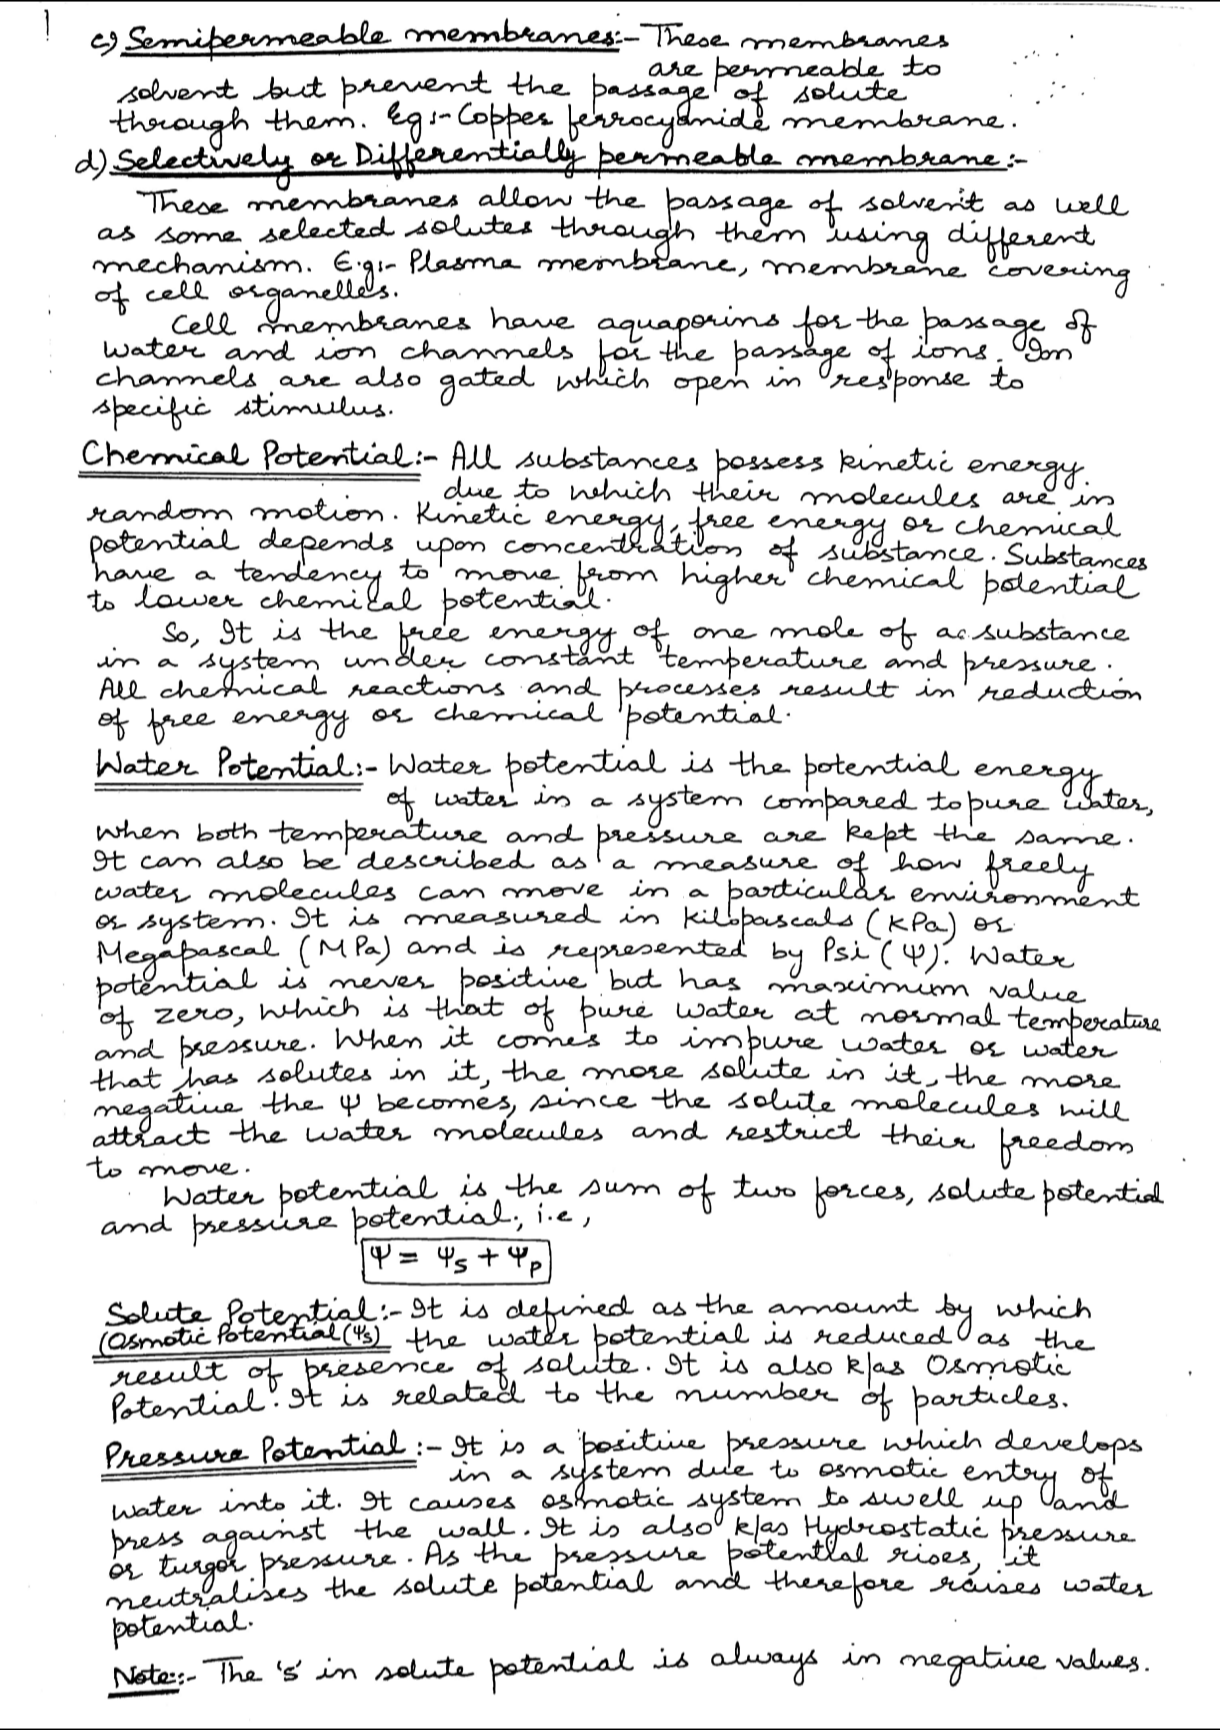 c) Semipermeable membranes:- These membranes
are permeable to
solvent but prevent the passage of solute
through them. Eg:- Copper ferrocyanide membrane.
d) Selectively or Differentially permeable membrane:-
These membranes allow the passage of solvent as well
as some selected solutes through them using different
mechanism. E.g:- Plasma membrane, membrane covering
of cell organelles.
Cell membranes have aquaporins for the passage of
water and ion channels for the passage of ions. Ion
channels are also gated which open in response to
specific stimulus.
Chemical Potential:- All substances possess kinetic energy
due to which their molecules are in
random motion. Kinetic energy, free energy or chemical
potential depends upon concentration of substance. Substances
have a tendency to move from higher chemical potential
to lower chemical potential.
So, It is the free energy of one mole of a substance
in a system under constant temperature and pressure.
All chemical reactions and processes result in reduction
of free energy or chemical potential.
Water Potential:- Water potential is the potential energy
of water in a system compared to pure water,
when both temperature and pressure are kept the same.
It can also be described as a measure of how freely
water molecules can move in a particular environment
or system. It is measured in kilopascals (kPa) or
Megapascal (MPa) and is represented by Psi (Ψ). Water
potential is never positive but has maximum value
of zero, which is that of pure water at normal temperature
and pressure. When it comes to impure water or water
that has solutes in it, the more solute in it, the more
negative the Ψ becomes, since the solute molecules will
attract the water molecules and restrict their freedom
to move.
Water potential is the sum of two forces, solute potential
and pressure potential; i.e,
Ψ = Ψs + Ψp
Solute Potential:- It is defined as the amount by which
(Osmotic Potential (Ψs) the water potential is reduced as the
result of presence of solute. It is also k/as Osmotic
Potential. It is related to the number of particles.
Pressure Potential:- It is a positive pressure which develops
in a system due to osmotic entry of
water into it. It causes osmotic system to swell up and
press against the wall. It is also k/as Hydrostatic pressure
or turgor pressure. As the pressure potential rises, it
neutralises the solute potential and therefore raises water
potential.
Note:- The 's' in solute potential is always in negative values.